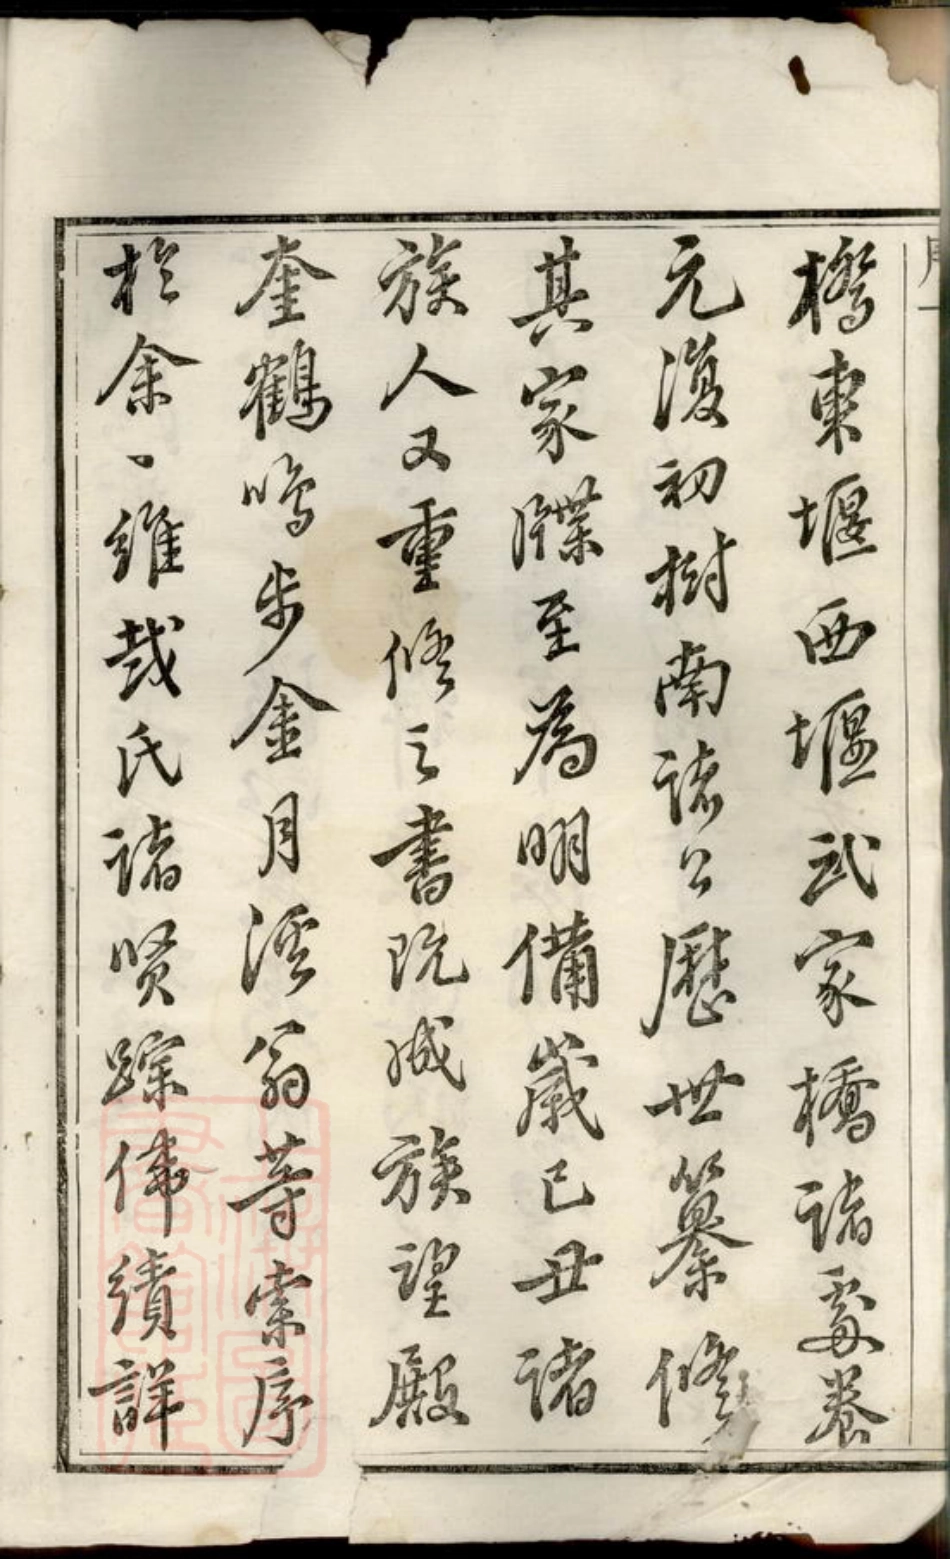 橋東堰西堰武家橋諸處養
元復初樹南諸公歷世纂修
其家牒至為明備歲己丑諸
族人又重修之書既成族望殿
奎鶴鳴步金月溪翁等索序
於余、維哉氏諸賢踪偉績詳